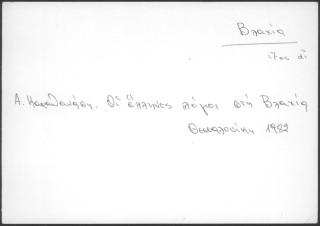 Βλαχία
17ος αἰ
Α. Καραθανάση. Οἱ ἕλληνες λόγιοι στή Βλαχία
Θεσσαλονίκη 1982